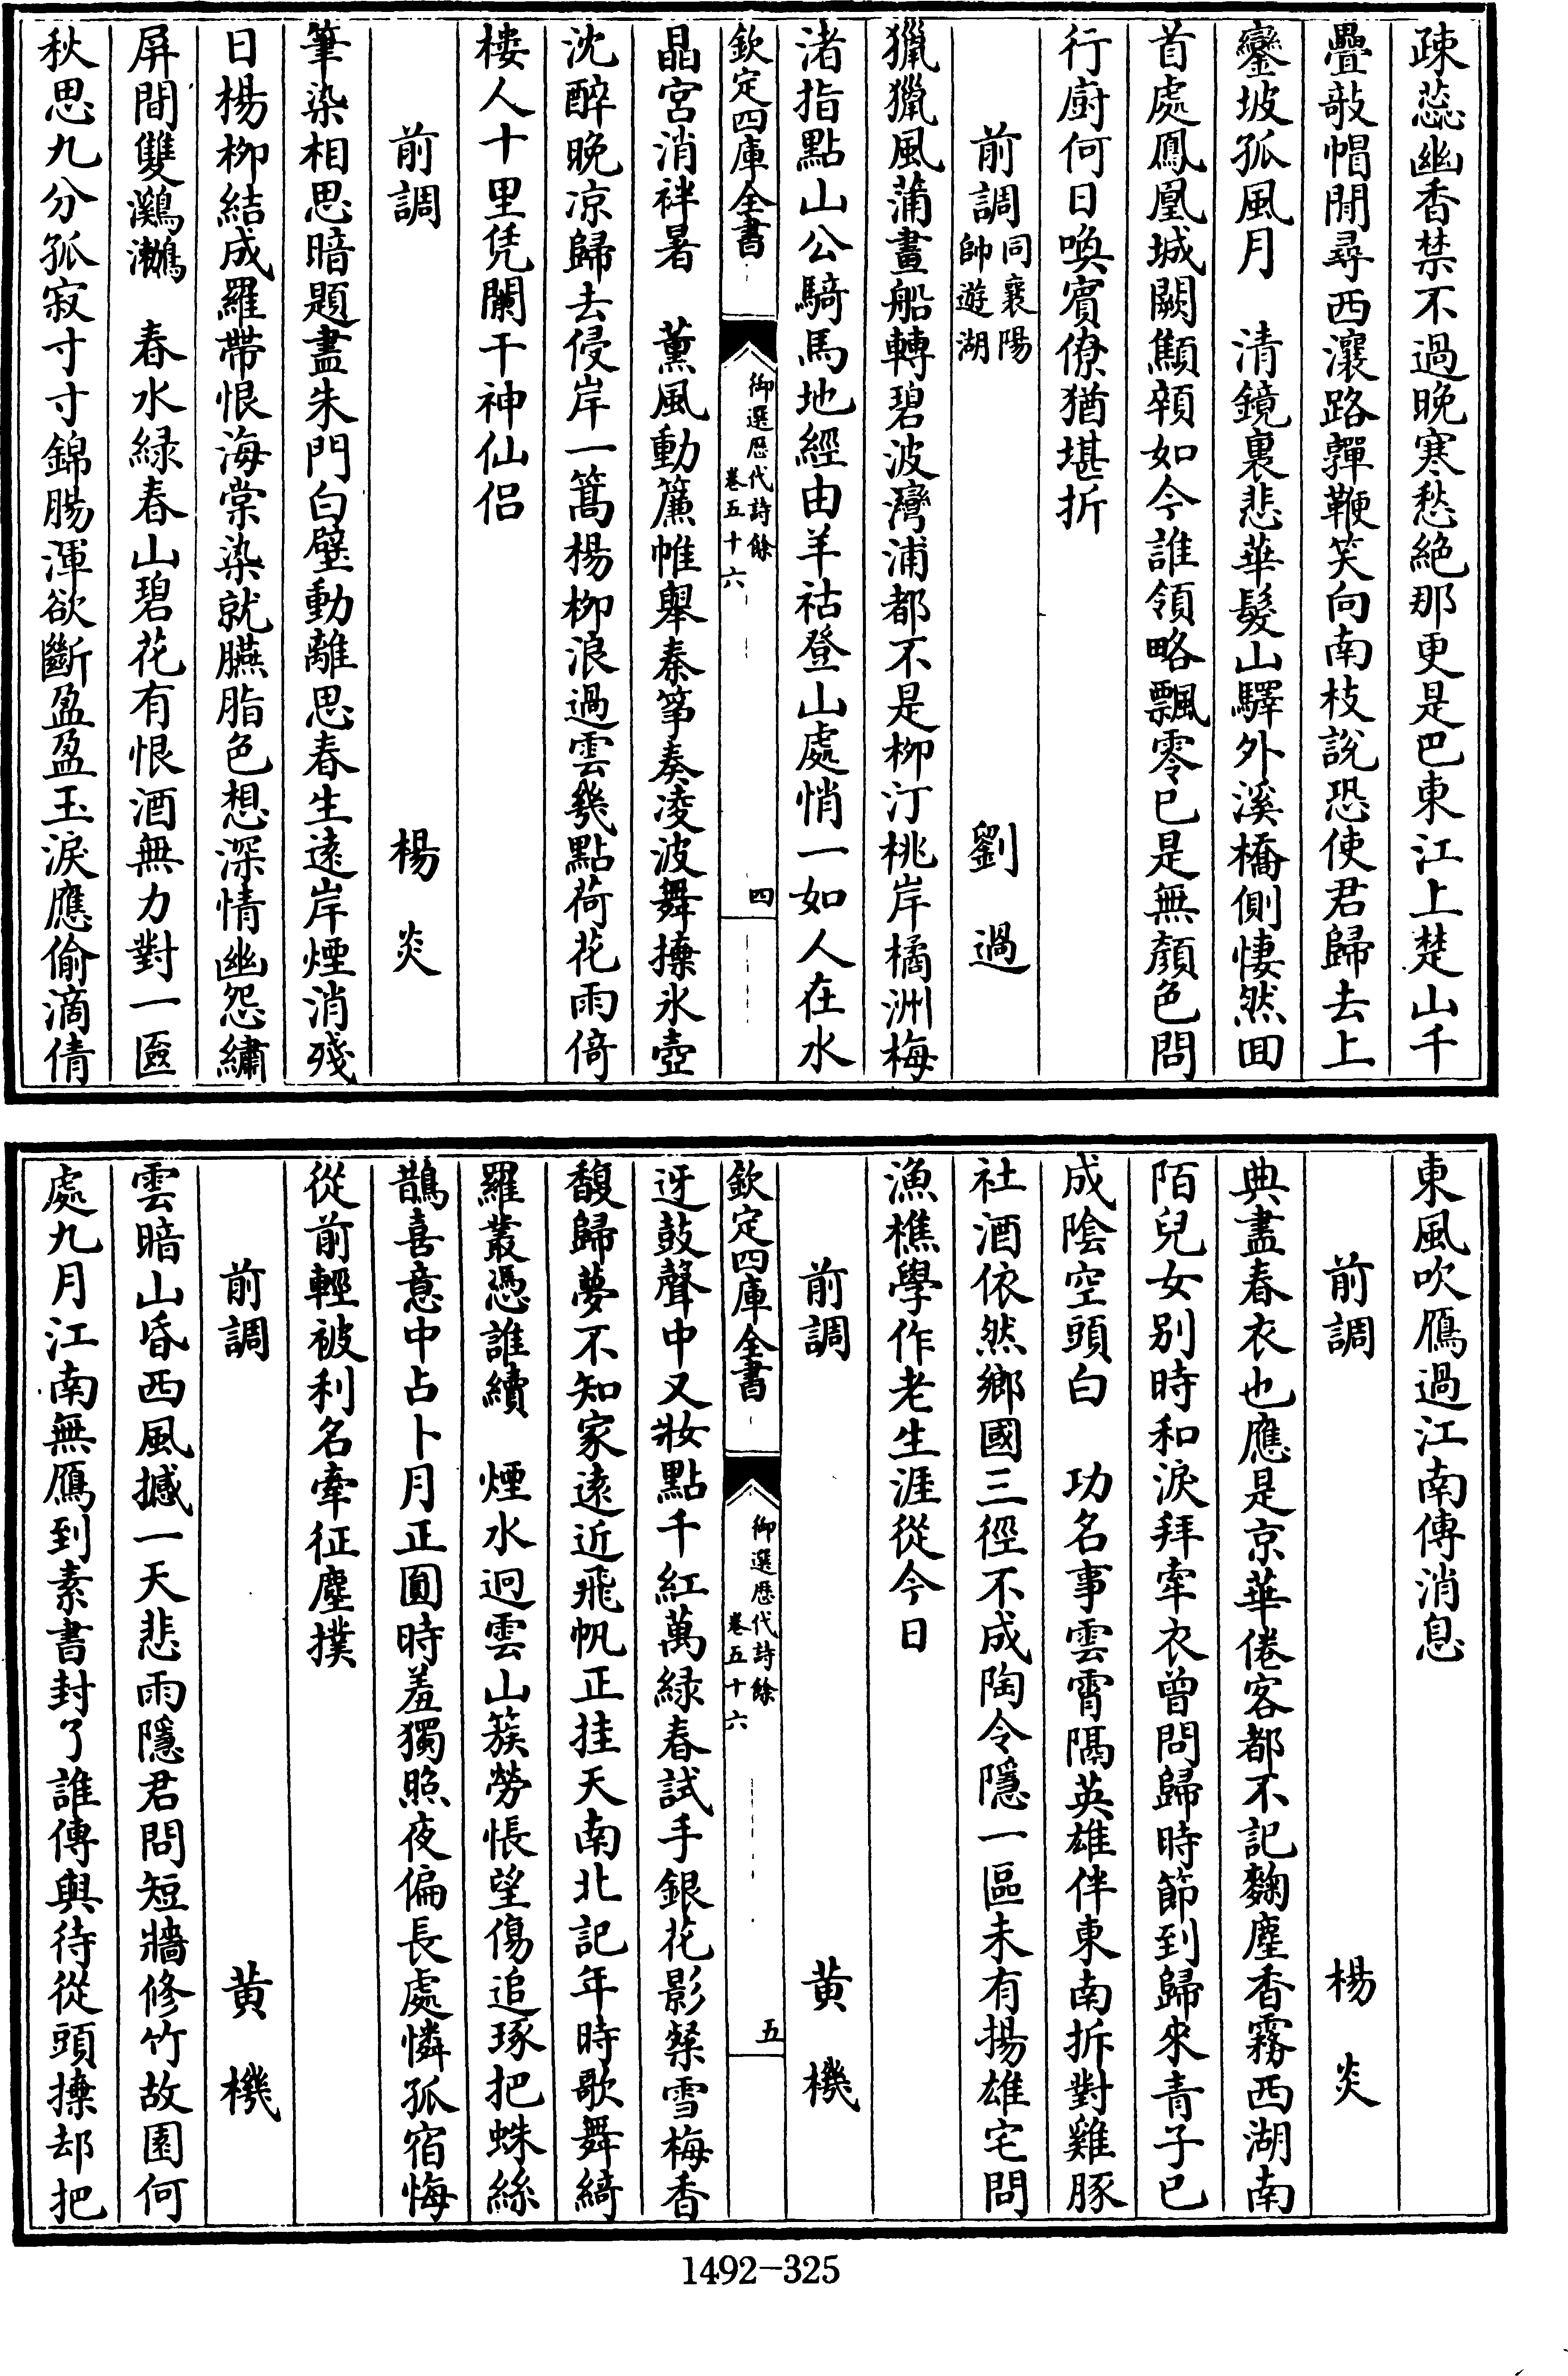 疎蕊幽香禁不過晚寒愁絶那更是巴東江上楚山千
疊敧帽閒尋西瀼路嚲鞭笑向南枝說恐使君歸去上
鑾坡孤風月　清鏡裏悲華髮山驛外溪橋側悽然回
首處鳳凰城闕顦顇如今誰領略飄零已是無顏色問
行廚何日喚賓僚猶堪折
前調同襄陽帥遊湖　劉過
獵獵風蒲畫船轉碧波灣浦都不是柳汀桃岸橘洲梅
渚指點山公騎馬地經由羊祜登山處悄一如人在水
欽定四庫全書　御選歷代詩餘　卷五十六　四
晶宮消袢暑　薰風動簾帷舉秦筝奏凌波舞揀氷壺
沈醉晚凉歸去侵岸一篙楊柳浪過雲幾點荷花雨倚
樓人十里凭闌干神仙侣
前調　楊炎
筆染相思暗題盡朱門白壁動離思春生遠岸煙消殘
日楊柳結成羅帶恨海棠染就臙脂色想深情幽怨繡
屏間雙鸂鶒　春水緑春山碧花有恨酒無力對一匳
秋思九分孤寂寸寸錦腸渾欲斷盈盈玉淚應偷滴倩
東風吹鴈過江南傳消息
前調　楊炎
典盡春衣也應是京華倦客都不記麴塵香霧西湖南
陌兒女别時和淚拜牽衣曾問歸時節到歸來青子已
成陰空頭白　功名事雲霄隔英雄伴東南拆對雞豚
社酒依然鄉國三徑不成陶令隱一區未有揚雄宅問
漁樵學作老生涯從今日
前調　黄機
欽定四庫全書　御選歷代詩餘　卷五十六　五
迓鼓聲中又妝點千紅萬緑春試手銀花影粲雪梅香
馥歸夢不知家遠近飛帆正挂天南北記年時歌舞綺
羅叢憑誰續　煙水迥雲山簇勞悵望傷追琢把蛛絲
鵲喜意中占卜月正圓時羞獨照夜偏長處憐孤宿悔
從前輕被利名牽征塵撲
前調　黄機
雲暗山昏西風撼一天悲雨隱君問短牆修竹故園何
處九月江南無鴈到素書封了誰傳與待從頭揀却把
1492-325